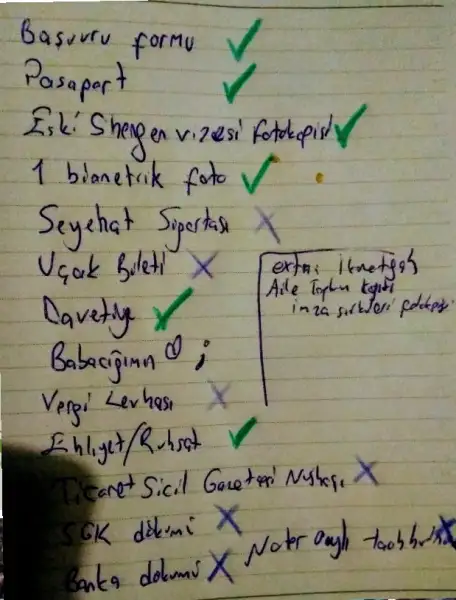 Başvuru formu
Pasaport
Eski Shengen vizesi fotokopisi
1 biometrik foto
Seyehat Sigortası
Uçak Bileti
extra: ikametgah
Aile Toplum Kağıdı
imza sirküleri fotokopisi
Davetiye
Babacığımın ;
Vergi Levhası
Ehliyet/Ruhsat
Ticaret Sicil Gazetesi Nushası
SGK dökümü
Banka dökümü
Noter Onaylı